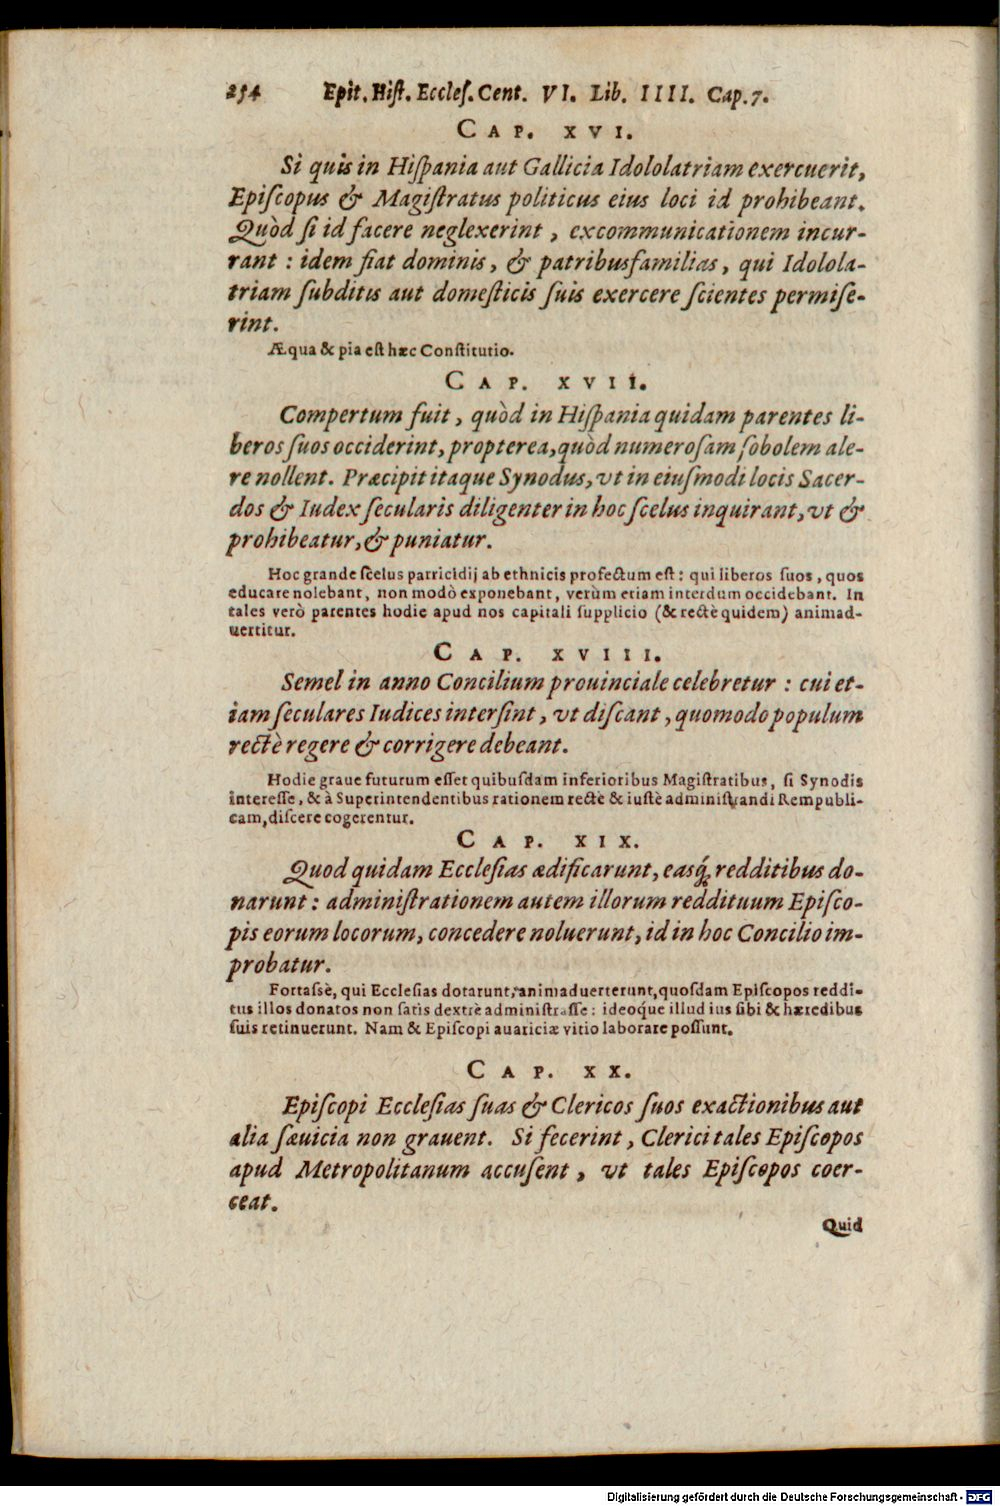 254 Epit. Hiſt. Eccleſ. Cent. VI. Lib. IIII. Cap. 7.
CAP. XVI.
Si quis in Hiſpania aut Gallicia Idololatriam exercuerit,
Epiſcopus & Magiſtratus politicus eius loci id prohibeant.
Quòd ſi id facere neglexerint, excommunicationem incur-
rant: idem fiat dominis, & patribusfamilias, qui Idolola-
triam ſubditis aut domeſticis ſuis exercere ſcientes permiſe-
rint.
Æqua & pia eſt hæc Conſtitutio.
CAP. XVII.
Compertum fuit, quòd in Hiſpania quidam parentes li-
beros ſuos occiderint, propterea, quòd numeroſam ſobolem ale-
re nollent. Præcipit itaque Synodus, vt in eiuſmodi locis Sacer-
dos & Iudex ſecularis diligenter in hoc ſcelus inquirant, vt &
prohibeatur, & puniatur.
Hoc grande ſcelus parricidij ab ethnicis profectum eſt: qui liberos ſuos, quos
educare nolebant, non modò exponebant, verùm etiam interdum occidebant. In
tales verò parentes hodie apud nos capitali ſupplicio (& rectè quidem) animad-
uertitur.
CAP. XVIII.
Semel in anno Concilium prouinciale celebretur: cui et-
iam ſeculares Iudices interſint, vt diſcant, quomodo populum
rectè regere & corrigere debeant.
Hodie graue futurum eſſet quibuſdam inferioribus Magiſtratibus, ſi Synodis
intereſſe, & à Superintendentibus rationem rectè & iuſtè adminiſtrandi Rempubli-
cam, diſcere cogerentur.
CAP. XIX.
Quod quidam Eccleſias ædificarunt, easq́; redditibus do-
narunt: adminiſtrationem autem illorum reddituum Epiſco-
pis eorum locorum, concedere noluerunt, id in hoc Concilio im-
probatur.
Fortaſſè, qui Eccleſias dotarunt, animaduerterunt, quoſdam Epiſcopos reddi-
tus illos donatos non ſatis dextrè adminiſtraſſe: ideoq́ue illud ius ſibi & hæredibus
ſuis retinuerunt. Nam & Epiſcopi auariciæ vitio laborare poſſunt.
CAP. XX.
Epiſcopi Eccleſias ſuas & Clericos ſuos exactionibus aut
alia ſæuicia non grauent. Si fecerint, Clerici tales Epiſcopos
apud Metropolitanum accuſent, vt tales Epiſcopos coer-
ceat.
Quid
Digitalisierung gefördert durch die Deutsche Forschungsgemeinschaft - DFG